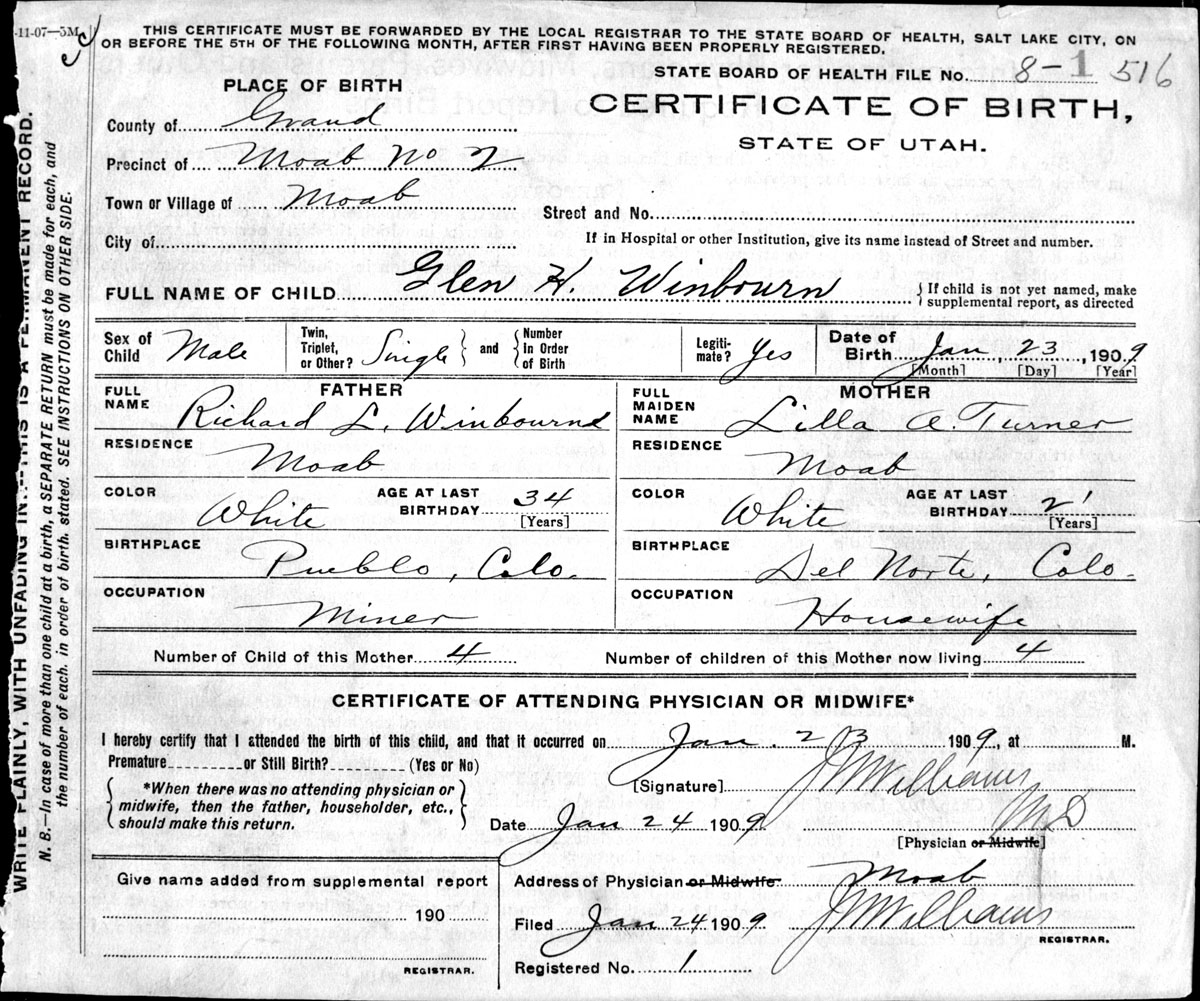 -11-07—5M
THIS CERTIFICATE MUST BE FORWARDED BY THE LOCAL REGISTRAR TO THE STATE BOARD OF HEALTH, SALT LAKE CITY, ON
OR BEFORE THE 5TH OF THE FOLLOWING MONTH, AFTER FIRST HAVING BEEN PROPERLY REGISTERED.
STATE BOARD OF HEALTH FILE No. 8-1 516
PLACE OF BIRTH
CERTIFICATE OF BIRTH,
STATE OF UTAH.
County of Grand
Precinct of Moab No 2
Town or Village of Moab
Street and No.
City of
If in Hospital or other Institution, give its name instead of Street and number.
FULL NAME OF CHILD Glen H. Winbourn
{If child is not yet named, make
supplemental report, as directed
Sex of Child Male
Twin, Triplet, or Other? Single } and { Number in Order of Birth
Legiti-mate? Yes
Date of Birth Jan, 23, 1909
[Month] [Day] [Year]
FATHER
FULL NAME Richard L. Winbourne
RESIDENCE Moab
COLOR White
AGE AT LAST BIRTHDAY 34
[Years]
BIRTHPLACE Pueblo, Colo.
OCCUPATION Miner
MOTHER
FULL MAIDEN NAME Lilla A. Turner
RESIDENCE Moab
COLOR White
AGE AT LAST BIRTHDAY
[Years]
BIRTHPLACE Del Norte, Colo.
OCCUPATION Housewife
Number of Child of this Mother 4
Number of children of this Mother now living 4
CERTIFICATE OF ATTENDING PHYSICIAN OR MIDWIFE*
I hereby certify that I attended the birth of this child, and that it occurred on Jan. 23 1909., at M.
Premature or Still Birth? (Yes or No)
{ *When there was no attending physician or
midwife, then the father, householder, etc.,
should make this return. }
[Signature] J W Williams
M D
Date Jan 24 1909
[Physician or Midwife]
Give name added from supplemental report
190
REGISTRAR.
Address of Physician or Midwife. Moab
Filed Jan 24 1909 J W Williams
REGISTRAR.
Registered No. 1
WRITE PLAINLY, WITH UNFADING INK—THIS IS A PERMANENT RECORD.
N. B.—In case of more than one child at a birth, a SEPARATE RETURN must be made for each, and
the number of each, in order of birth, stated. SEE INSTRUCTIONS ON OTHER SIDE.